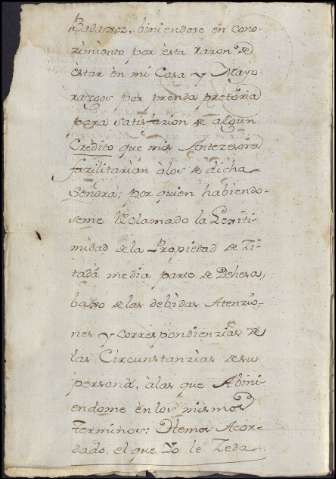 Badajoz, viniendose en cono-
cimiento por esta razon, de
estar en mi Casa y Mayo-
razgos por prenda pretoria
para satisfazion de algun
Credito que mis Antezesores
fazilitarian à los de dicha
Señora; por quien habiendo-
seme Reclamado la Lexiti-
midad de la Propiedad de Zi-
tada media parte de Dehesa,
baxo de las debidas Atenzio-
nes y correspondienzias de
las Circunstanzias de su
persona, à las que Abini-
endome en los mismos
terminos: Hemos Acor-
dado, el que Yo le Zeda